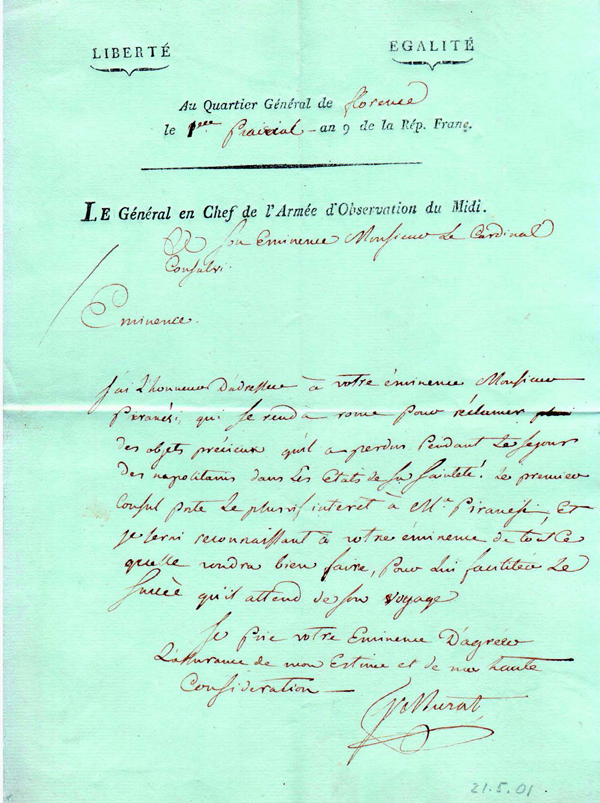 LIBERTÉ EGALITÉ
Au Quartier Général de florence
le 1er Prairial an 9 de la Rép. Franç.
LE Général en Chef de l'Armée d'Observation du Midi.
A Son Eminence Monsieur Le Cardinal
Consalvi.
Eminence.
J'ai L'honneur D'adresser à votre éminence Monsieur
Piranési, qui se rend a rome pour réclamer
des objets précieux qu'il a perdus Pendant Le Sejour
des napolitains dans Les Etats de Sa Sainteté. Le premier
Consul porte Le plus vif interet à Mr. Piranesi, Et
je serai reconnaissant à votre éminence de tout Ce
quelle voudra bien faire, Pour Lui faciliter Le
Succès qu'il attend de Son voyage
Je Prie votre Eminence D'agréer
L'assurance de mon Estime et de ma haute
Consideration —
Murat
21.5.01